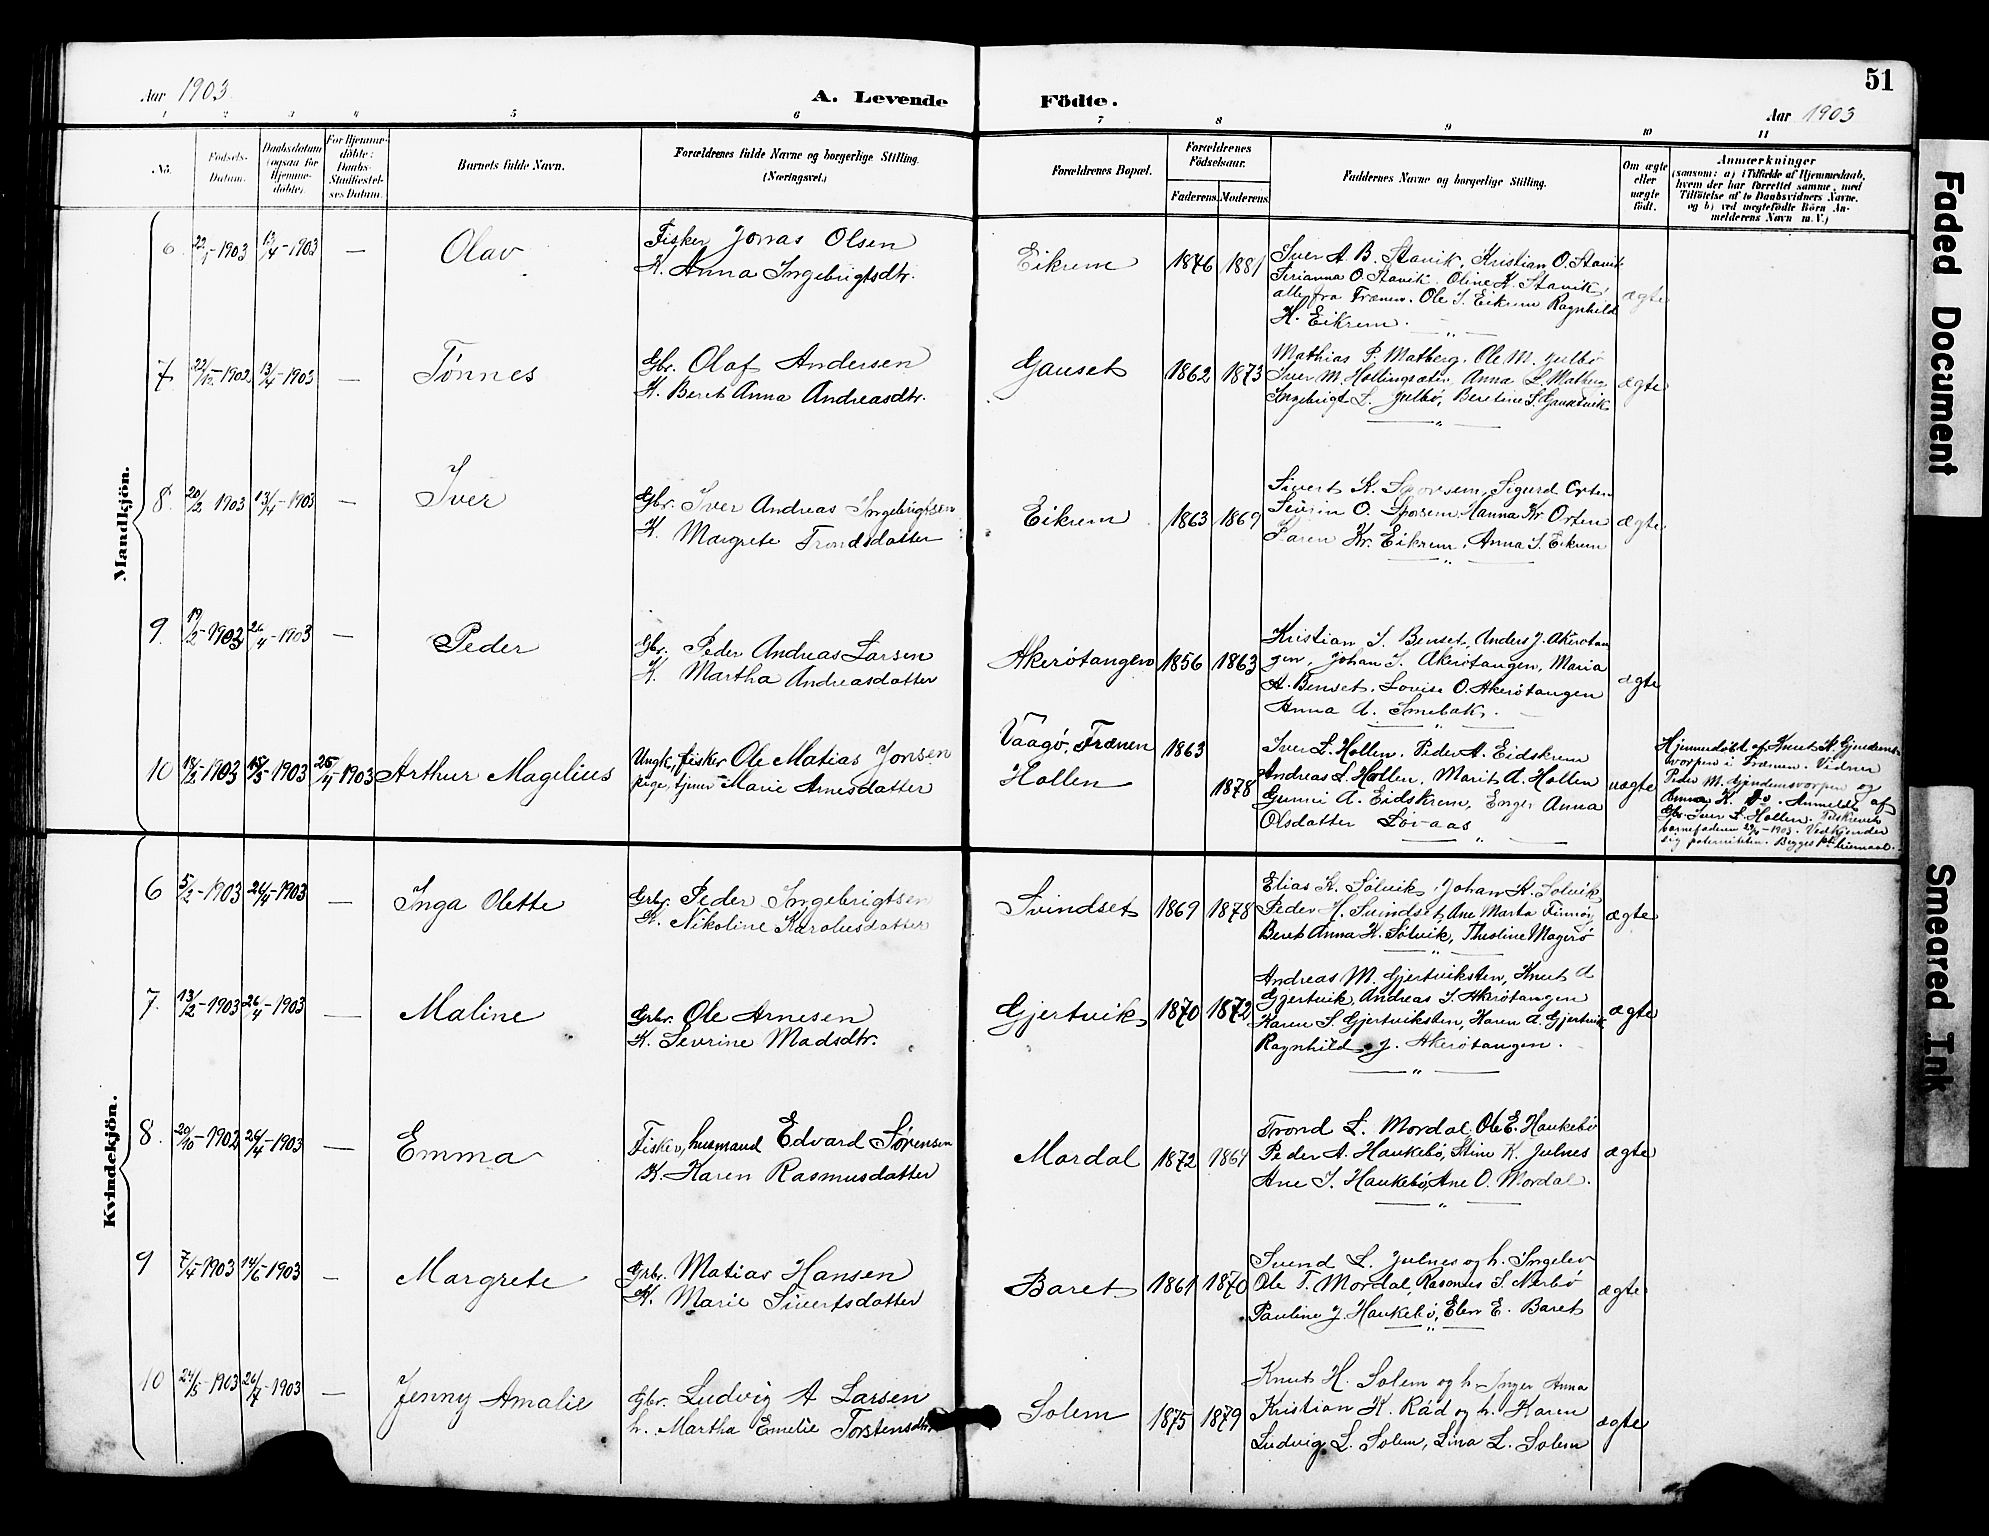 51
Aar 1903
A. Levende Födte.
Aar 1903
1 2 3 4 5 6 7 8 9 10 11
No.
Fødsels-Datum.
Daabsdatum (ogsaa for Hjemmedøbte).
For Hjemmedöbte: Daabs-Stadfæstelses Datum.
Barnets fulde Navn.
Forældrenes fulde Navne og borgerlige Stilling. (Næringsvei.)
Forældrenes Bopæl.
Forældrenes Födselsaar.
Faderens Moderens
Faddernes Navne og borgerlige Stilling.
Om ægte eller uægte födt.
Anmærkninger
(saasom: a) i Tilfælde af Hjemmedaab, hvem der har forrettet samme, med Tilføielse af to Daabsvidners Navne, og b) ved uægtefødte Börn Anmelderens Navn m. V.)
Mandkjön.
6 22/1-1903 13/4-1903 — Olav
Fisker Jonas Olsen
K. Anna Ingebrigtsdtr.
Eikrem 1876 1881
Iver A. B. Stavik, Kristian O. Stavik
Serianna O. Stavik. Oline K. Stavik,
alle fra Frænen. Ole I. Eikrem Ragnhild
K. Eikrem.
ægte
7 22/12-1902 13/4-1903 — Tønnes
Gbr. Olaf Andersen
K. Beret Anna Andreasdtr.
Gauset 1862 1873
Mathias P. Malberg. Ole M. Julbø
Iver M. Hollingsæter, Anna L. Malberg
Ingebrigt L. Julbø, Beretine S. Gaustvik
ægte
8. 20/2 1903 13/4-1903 — Iver
Gbr. Iver Andreas Ingebrigtsen
K. Margrete Trondsdatter
Eikrem 1863 1869
Sivert K. Sporsem, Sigurd Orten
Severin O. Sporsem, Hanna Kr Orten
Karen Kr. Eikrem, Anna I. Eikrem
ægte
9. 19/2-1903 26/4-1903 — Peder
Gbr. Peder Andreas Larsen
K. Martha Andreasdatter
Akerøtangen 1856 1863
Kristian I. Benset, Anders J. Akerøtan
gen, Johan I. Akerøtangen, Maria
A. Benset, Lovise O. Akerøtangen
Anna A. Smebak.
ægte
10 14/2-1903 15/3-1903 25/4-1903 Arthur Magelius
Ungk, fisker Ole Matias Jonsen
pige, tjener Marie Arnesdatter
Vaagø, Frænen 1863
Hollen 1878
Iver L. Hollen, Peder A. Eidskrem
Andreas L. Hollen, Marit A. Hollen
Gunni A. Eidskrem, Enger Anna
Olsdatter Løvaas
uægte
Hjemmedøbt af Knut K. Gjendems
vorpen i Frænen. Vidner
Peder M. Gjendemsvorpen og
Anna K. do. Anmeldt af
Gbr. Iver L. Hollen. Tilskrevet
barnefaderen 29/4-1903. Vedkjender
sig paterniteten. Begges 1ste leiermaal.
Kvindekjön.
6 5/2-1903 26/4-1903 — Inga Olette
Grbr. Peder Ingebrigtsen
K. Nikoline Karolusdatter
Svindset 1869 1878
Elias K. Sølvik, Johan K. Solvik
Peder H. Svindset, Ane Marta Finnøy
Beret Anna K. Sølvik, Theoline Magerø
ægte
7. 13/2-1903 26/4-1903 — Maline
Grbr. Ole Arnesen
K. Sevrine Madsdtr.
Gjertvik 1870 1872
Andreas M. Gjertviksten, Knut A
Gjertvik, Andreas I. Akerøtangen
Karen S. Gjertviksten, Karen A. Gjertvik
Ragnhild J. Akerøtangen.
ægte
8. 20/10-1902 26/4-1903 — Emma
Fisker, husmand Edvard Sørensen
K. Karen Rasmusdatter
Mordal 1872 1864
Trond L. Mordal, Ole E. Haukebø
Peder A. Haukebø, Stine K. Julnes
Ane I. Haukebø, Ane O. Mordal.
ægte
9 7/4-1903 14/6-1903 — Margrete
Grbr. Matias Hansen
K. Marie Sivertsdatter
Baret 1861 1870
Svend L. Julnes og h. Ingelev
Ole T. Mordal, Rasmus S. Nerbø
Pauline J. Haukebø, Elen E. Baret
ægte
10 24/5-1903 26/7-1903 — Jenny Amalie
Gbr. Ludvig A Larsen
h. Martha Emelie Torstensdtr.
Solem 1875 1879
Knut H. Solem og h. Inger Anna
Kristian K. Råd og h. Karen
Ludvig L. Solem, Lina L. Solem
ægte
Faded Document
Smeared Ink